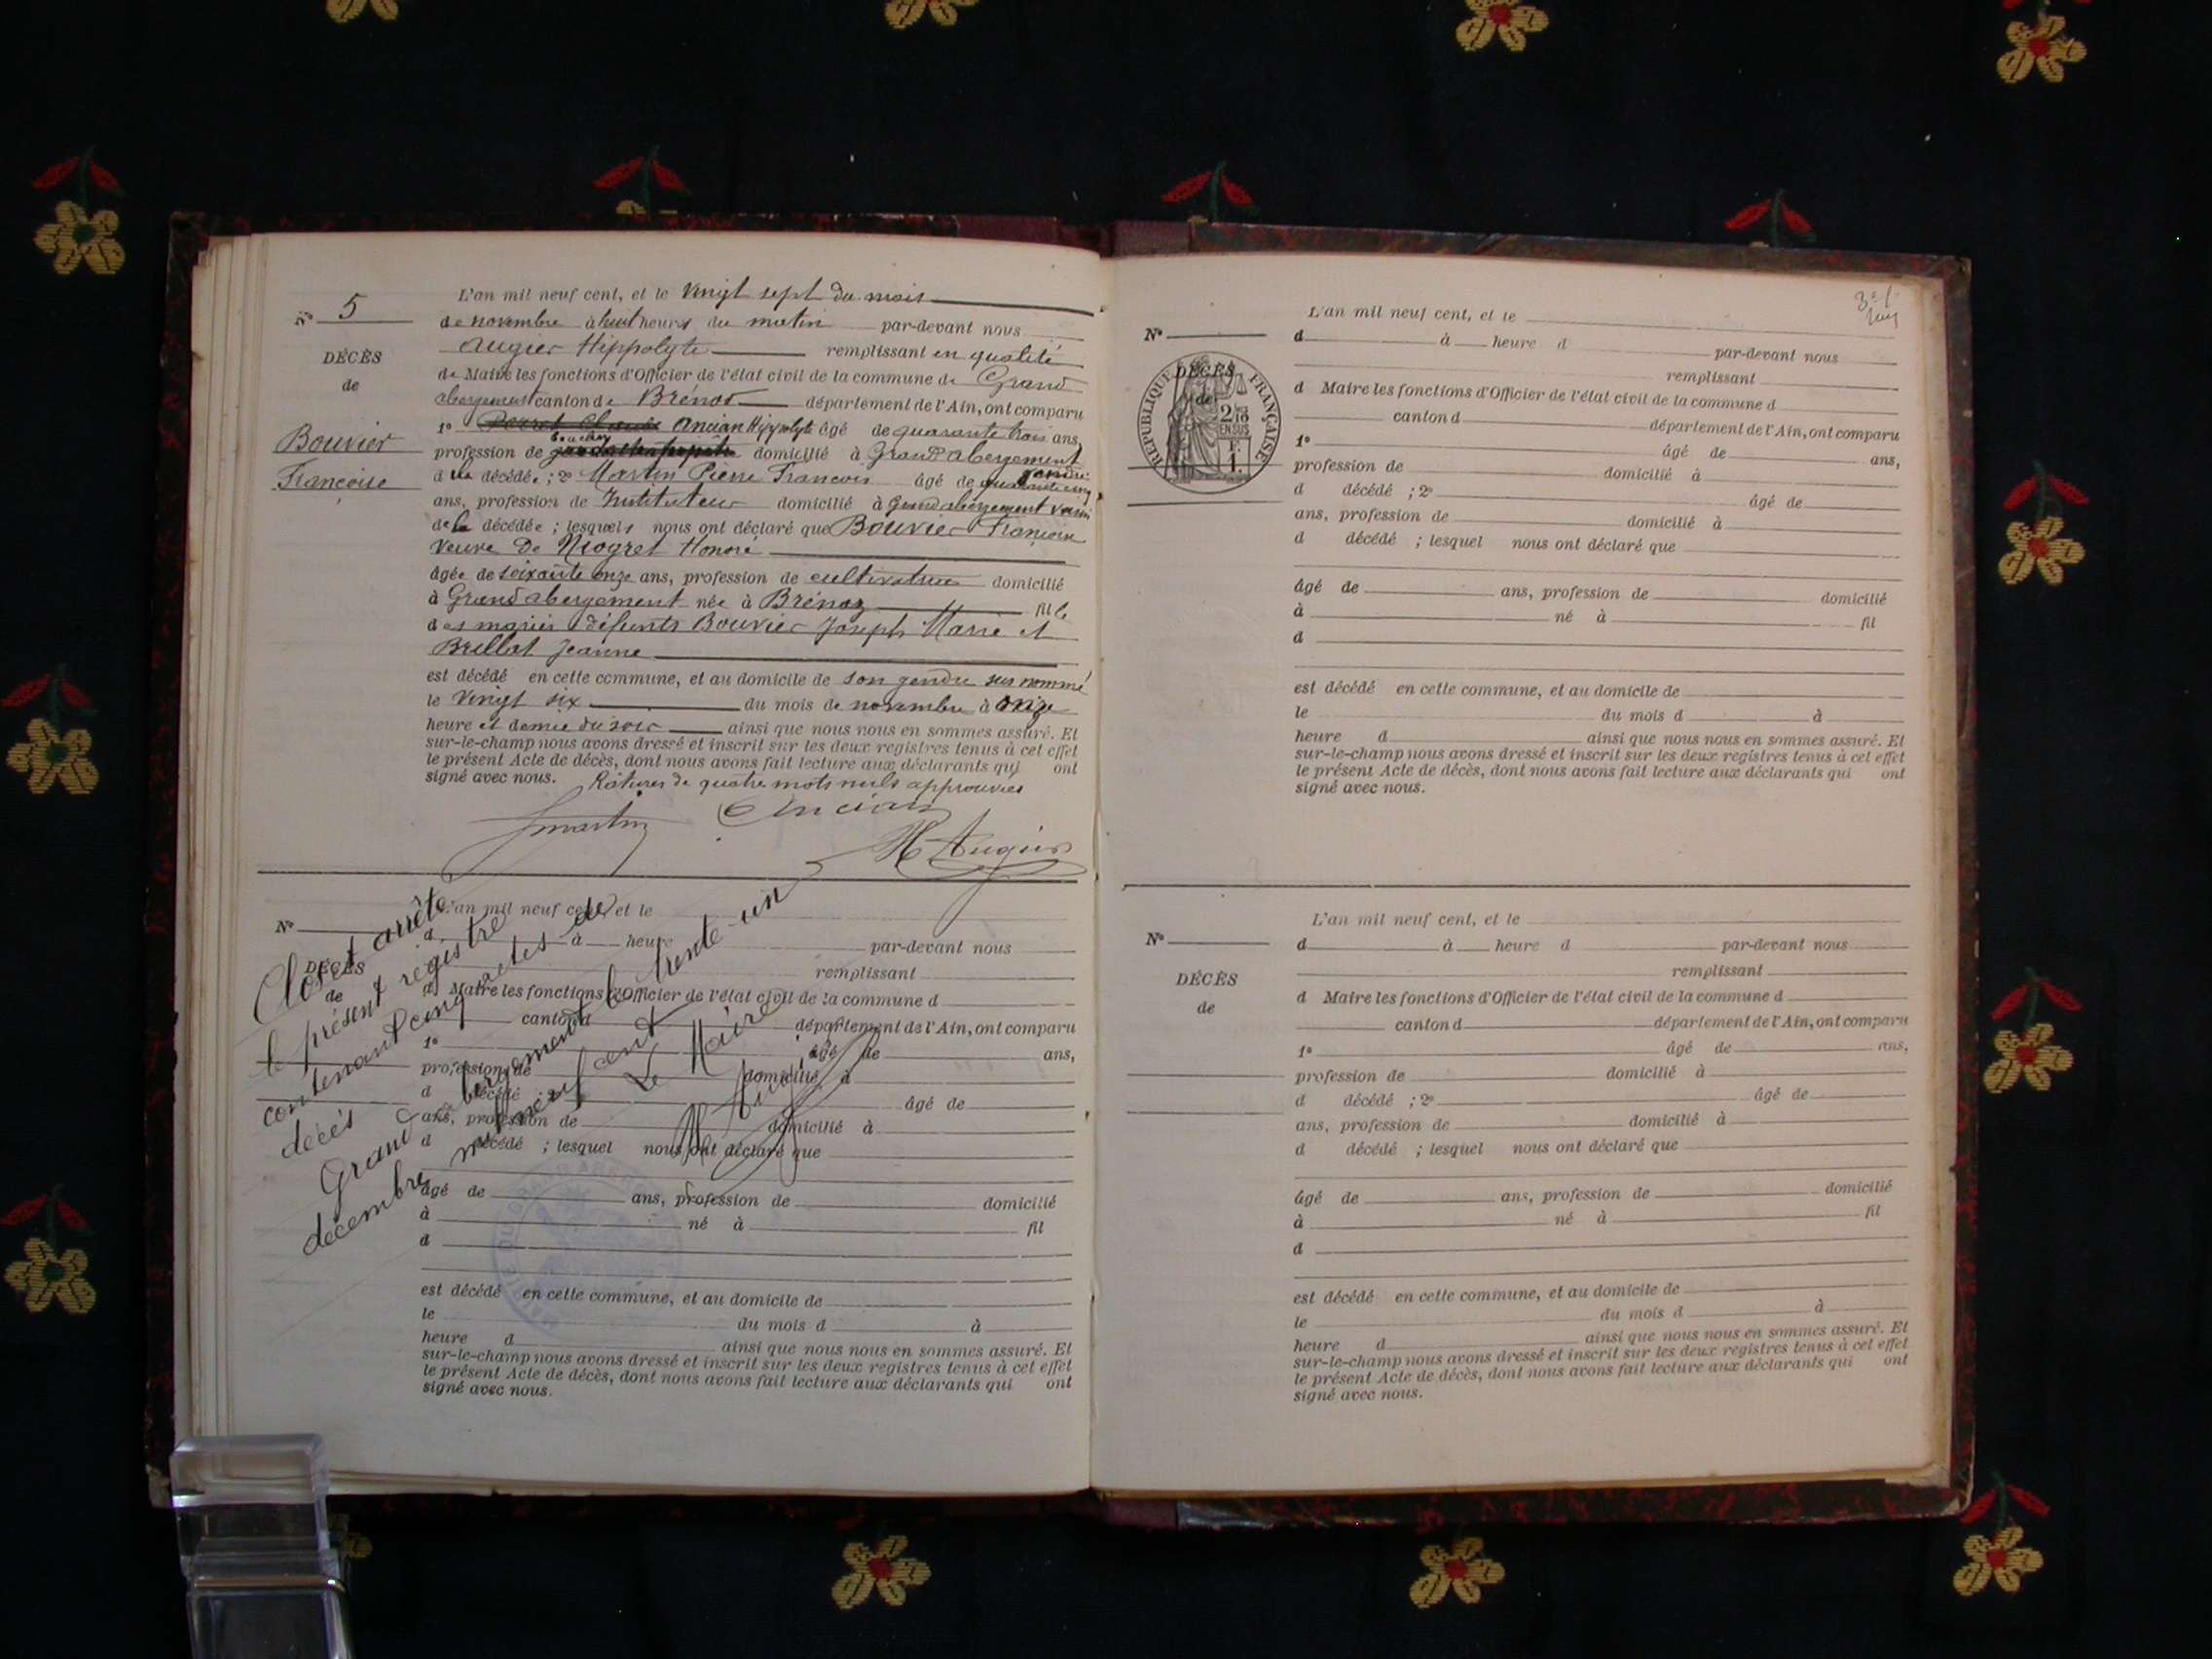 N° 5
DÉCÈS
de
Bouvier
Françoise
L'an mil neuf cent, et le vingt sept du mois
de novembre à huit heures du matin par-devant nous
Augier Hippolyte remplissant en qualité
de Maire les fonctions d'Officier de l'état civil de la commune de Grand
abergement canton de Brénod département de l'Ain, ont comparu
1° Ancian Hippolyte âgé de quarante trois ans,
profession de domicilié à Grand abergement
gendre
d la décédée ; 2° Martin Pierre François âgé de quarante cinq
ans, profession de Instituteur domicilié à Grand abergement voisin
de la décédée ; lesquels nous ont déclaré que Bouvier Françoise
veuve de Niogret Honoré
âgée de soixante onze ans, profession de cultivatrice domicilié
à Grand abergement née à Brénoz fille
des mariés défunts Bouvier Joseph Marie et
Brillat Jeanne
est décédé en cette commune, et au domicile de son gendre sus nommé
le vingt six du mois de novembre à onze
heure et demie du soir ainsi que nous nous en sommes assuré. Et
sur-le-champ nous avons dressé et inscrit sur les deux registres tenus à cet effet
le présent Acte de décès, dont nous avons fait lecture aux déclarants qui ont
signé avec nous. Ratures de quatre mots nuls approuvées
Martin Ancian
H Augier
N°
DÉCÈS
de
L'an mil neuf cent, et le
d à heure par-devant nous
remplissant
d Maire les fonctions d'Officier de l'état civil de la commune d
canton d département de l'Ain, ont comparu
1° âgé de ans,
profession de domicilié à
d décédé ; 2° âgé de
ans, profession de domicilié à
d décédé ; lesquel nous ont déclaré que
âgé de ans, profession de domicilié
à né à fil
d
est décédé en cette commune, et au domicile de
le du mois d à
heure d ainsi que nous nous en sommes assuré. Et
sur-le-champ nous avons dressé et inscrit sur les deux registres tenus à cet effet
le présent Acte de décès, dont nous avons fait lecture aux déclarants qui ont
signé avec nous.
Clos et arrêté
le présent registre
contenant cinq actes de
décès
Grand abergement le trente-un
décembre mil neuf cent
Le Maire
H Augier
N°
DÉCÈS
de
RÉPUBLIQUE FRANÇAISE
2/10
EN SUS
F.
1.
L'an mil neuf cent, et le
d à heure d par-devant nous
remplissant
d Maire les fonctions d'Officier de l'état civil de la commune d
canton d département de l'Ain, ont comparu
1° âgé de ans,
profession de domicilié à
d décédé ; 2° âgé de
ans, profession de domicilié à
d décédé ; lesquel nous ont déclaré que
âgé de ans, profession de domicilié
à né à fil
d
est décédé en cette commune, et au domicile de
le du mois d à
heure d ainsi que nous nous en sommes assuré. Et
sur-le-champ nous avons dressé et inscrit sur les deux registres tenus à cet effet
le présent Acte de décès, dont nous avons fait lecture aux déclarants qui ont
signé avec nous.
N°
DÉCÈS
de
L'an mil neuf cent, et le
d à heure d par-devant nous
remplissant
d Maire les fonctions d'Officier de l'état civil de la commune d
canton d département de l'Ain, ont comparu
1° âgé de ans,
profession de domicilié à
d décédé ; 2° âgé de
ans, profession de domicilié à
d décédé ; lesquel nous ont déclaré que
âgé de ans, profession de domicilié
à né à fil
d
est décédé en cette commune, et au domicile de
le du mois d à
heure d ainsi que nous nous en sommes assuré. Et
sur-le-champ nous avons dressé et inscrit sur les deux registres tenus à cet effet
le présent Acte de décès, dont nous avons fait lecture aux déclarants qui ont
signé avec nous.